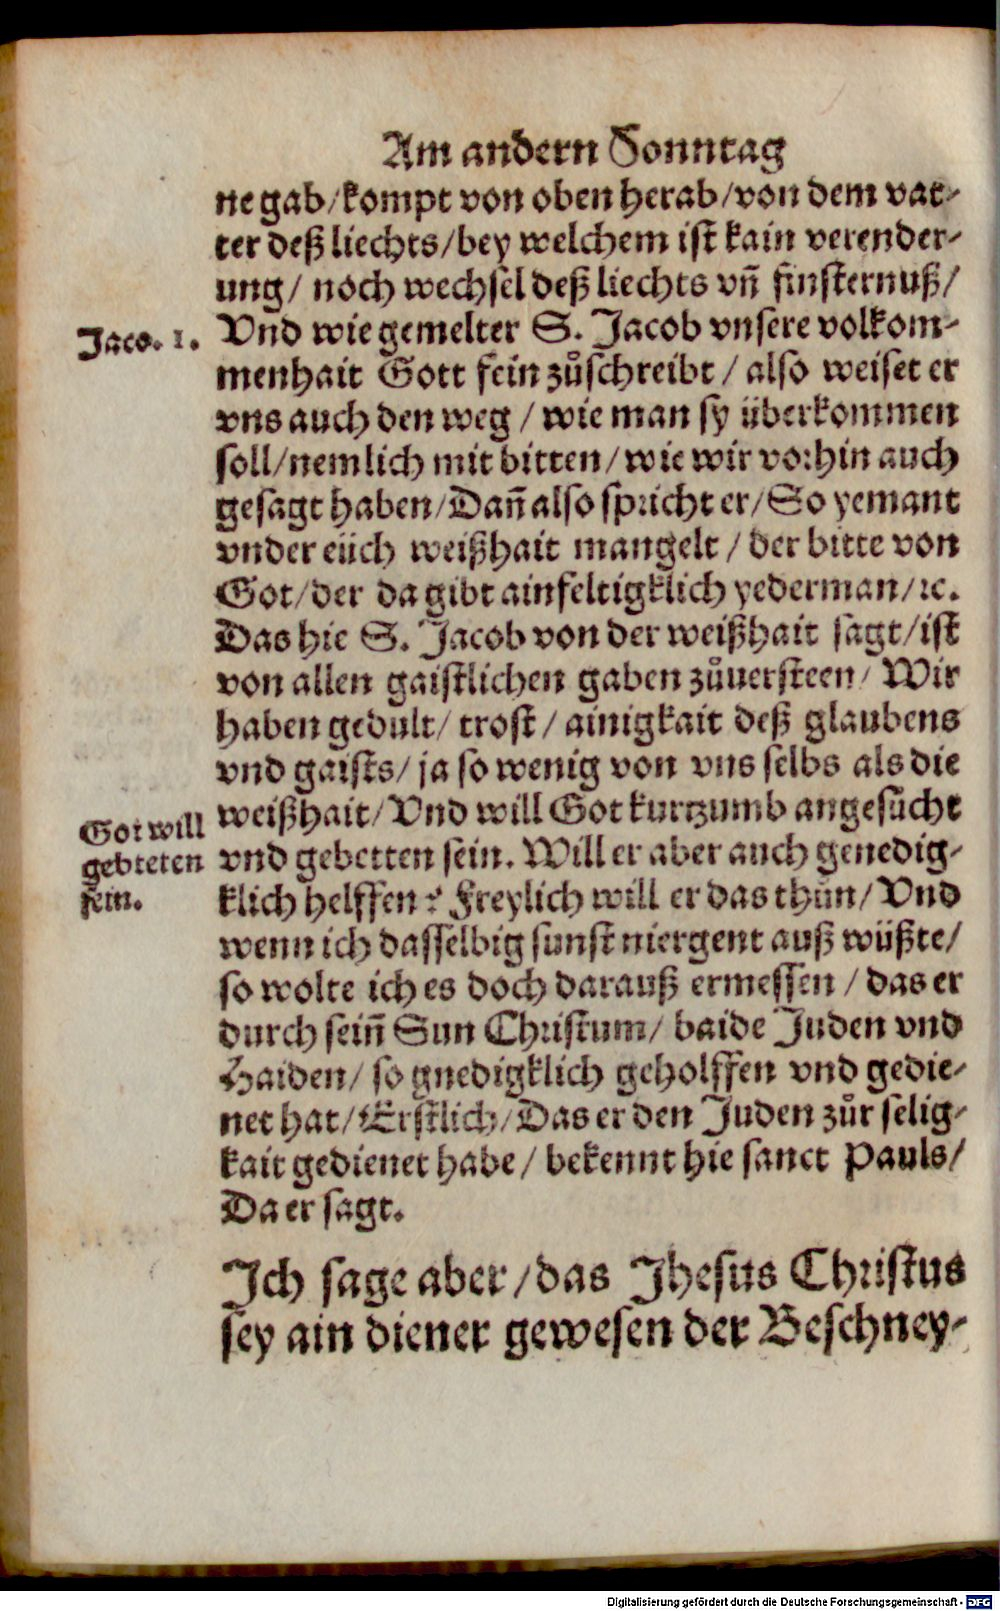 Am andern Sonntag
ne gab/kompt von oben herab/von dem vat-
ter deß liechts/bey welchem ist kain verender-
ung/ noch wechsel deß liechts vñ finsternuß/
Jaco. 1.
Vnd wie gemelter S. Jacob vnsere volkom-
menhait Gott fein zůschreibt / also weiset er
vns auch den weg / wie man sy überkommen
soll/nemlich mit bitten/wie wir vorhin auch
gesagt haben/Dañ also spricht er/So yemant
vnder eüch weißhait mangelt / der bitte von
Got/der da gibt ainfeltigklich yederman/ꝛc.
Das hie S. Jacob von der weißhait sagt/ist
von allen gaistlichen gaben zůuersteen/ Wir
haben gedult/ trost / ainigkait deß glaubens
vnd gaists/ ja so wenig von vns selbs als die
weißhait/ Vnd will Got kurtzumb angesůcht
Got will
gebteten
sein.
vnd gebetten sein. Will er aber auch genedig-
klich helffen? Freylich will er das thůn/ Vnd
wenn ich dasselbig sunst niergent auß wüßte/
so wolte ich es doch darauß ermessen / das er
durch seiñ Sun Christum/ baide Juden vnd
Haiden/ so gnedigklich geholffen vnd gedie-
net hat/ Erstlich/ Das er den Juden zůr selig-
kait gedienet habe / bekennt hie sanct Pauls/
Da er sagt.
Ich sage aber/das Jhesus Christus
sey ain diener gewesen der Beschney-
Digitalisierung gefördert durch die Deutsche Forschungsgemeinschaft - DFG